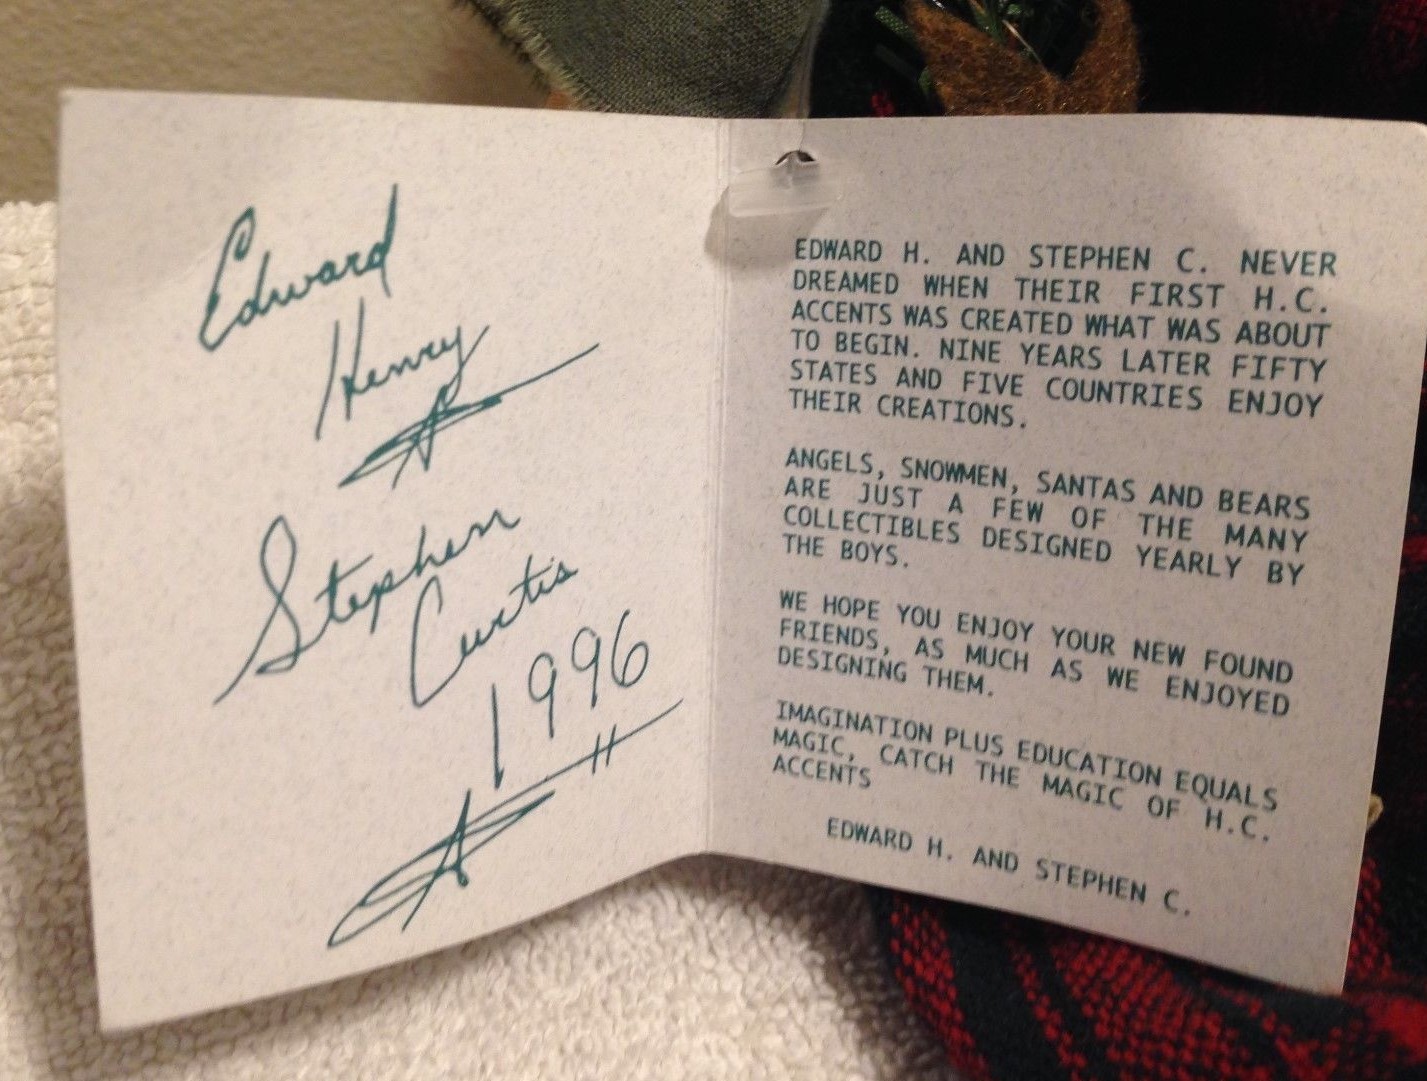 Edward
Henry
Stephen
Curtis
1996
EDWARD H. AND STEPHEN C. NEVER
DREAMED WHEN THEIR FIRST H.C.
ACCENTS WAS CREATED WHAT WAS ABOUT
TO BEGIN. NINE YEARS LATER FIFTY
STATES AND FIVE COUNTRIES ENJOY
THEIR CREATIONS.
ANGELS, SNOWMEN, SANTAS AND BEARS
ARE JUST A FEW OF THE MANY
COLLECTIBLES DESIGNED YEARLY BY
THE BOYS.
WE HOPE YOU ENJOY YOUR NEW FOUND
FRIENDS, AS MUCH AS WE ENJOYED
DESIGNING THEM.
IMAGINATION PLUS EDUCATION EQUALS
MAGIC, CATCH THE MAGIC OF H.C.
ACCENTS
EDWARD H. AND STEPHEN C.